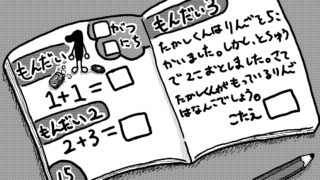 もんだい1
がつ
にち
1+1=
もんだい2
2+3=
15
もんだい3
たかしくんはりんごを5こ
かいました。しかし、とちゅう
で2こおとしました。さて
たかしくんがもっているりんご
はなんこでしょう。
こたえ